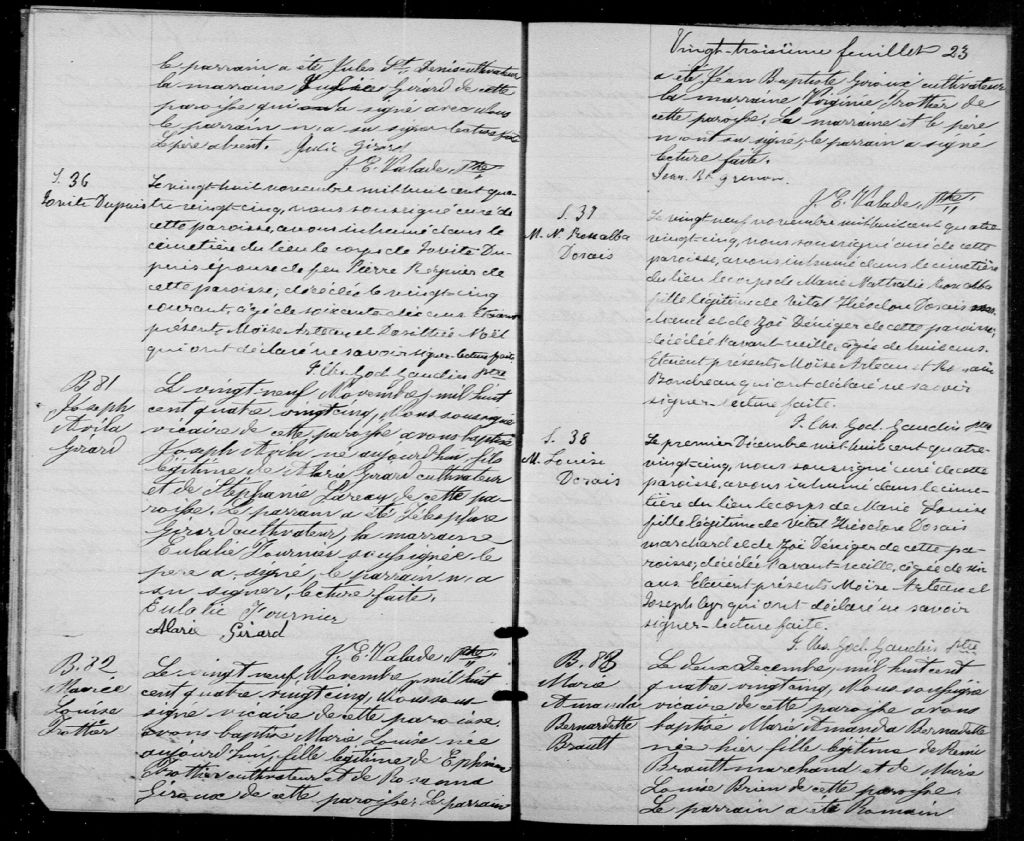 le parrain a été Jules St. Denis cultivateur
la marraine Girard de cette
paroisse qui a signé avec nous
le parrain n'a su signer lecture faite
Le père absent. Julie Girard
J. E. Valade, Ptre
S. 36
Jovite Dupuis
Le vingt huit novembre mil huit cent qua-
tre-vingt-cinq, nous soussigné curé de
cette paroisse, avons inhumé dans le
cimetière du lieu le corps de Jovite Du-
puis épouse de feu Pierre Regnier de
cette paroisse, décédée le vingt-cinq
courant, agée de soixante-dix ans. Etaient
présents Moïse Arteau et Dosithée Noël
qui ont déclaré ne savoir signer-lecture faite
F. Chs. God. Gaudin Ptre
B. 81
Joseph
Avila
Girard
Le vingt neuf Novembre, mil huit
cent quatre vingt cinq, Nous soussigné
vicaire de cette paroisse avons baptisé
Joseph Avila né aujourd'hui, fils
légitime de Alarie Girard cultivateur
et de Stéphanie Lareau de cette pa-
roisse. Le parrain a été Télesphore
Girard cultivateur, la marraine
Eulalie Fournier soussignée le
père a signé, le parrain n'a
su signer, lecture faite.
Eulalie Fournier
Alarie Girard
J. E. Valade, Ptre
B. 82
Marie
Louise
Trottier
Le vingt neuf, Novembre, mil huit
cent quatre vingt cinq, Nous sous-
signé vicaire de cette paroisse
avons baptisé Marie Louise née
aujourd'hui, fille légitime de Ephrem
Trottier cultivateur et de Rosanna
Giroux de cette paroisse. Le parrain
Vingt-troisième feuillet 23
a été Jean Baptiste Giroux cultivateur
la marraine Virginie Trottier de
cette paroisse. La marraine et le père
n'ont su signé, le parrain a signé
lecture faite.
Jean Bt
J. E. Valade, Ptre
S. 37
M. N. Rosalba
Dorais
Le vingt neuf novembre mil huit cent quatre
vingt-cinq, nous soussigné curé de cette
paroisse, avons inhumé dans le cimetière
du lieu le corps de Marie Nathalie Rosalba
fille légitime de Vital Théodore Dorais mar-
chand et de Zoë Déniger de cette paroisse,
décédée l'avant-veille, agée de huit ans.
Etaient présents Moïse Arteau et
Boudreau qui ont déclaré ne savoir
signer-lecture faite.
F. Chs. God. Gaudin Ptre
S. 38
M. Louise
Dorais
Le premier Décembre mil huit cent quatre-
vingt-cinq, nous soussigné curé de cette
paroisse, avons inhumé dans le cime-
tière du lieu le corps de Marie Louise
fille légitime de Vital Théodore Dorais
marchand et de Zoë Déniger de cette pa-
roisse, décédée l'avant-veille, agée de six
ans. Etaient présents Moïse Arteau et
Joseph Cyr qui ont déclaré ne savoir
signer-lecture faite.
F. Chs. God. Gaudin Ptre
B. 83
Marie
Amanda
Bernadette
Brault
Le deux Decembre, mil huit cent
quatre vingt cinq, Nous soussigné
vicaire de cette paroisse avons
baptisé Marie Amanda Bernadette
née hier fille légitime de Rémi
Brault marchand et de Marie
Louise Brien de cette paroisse.
Le parrain a été Romain